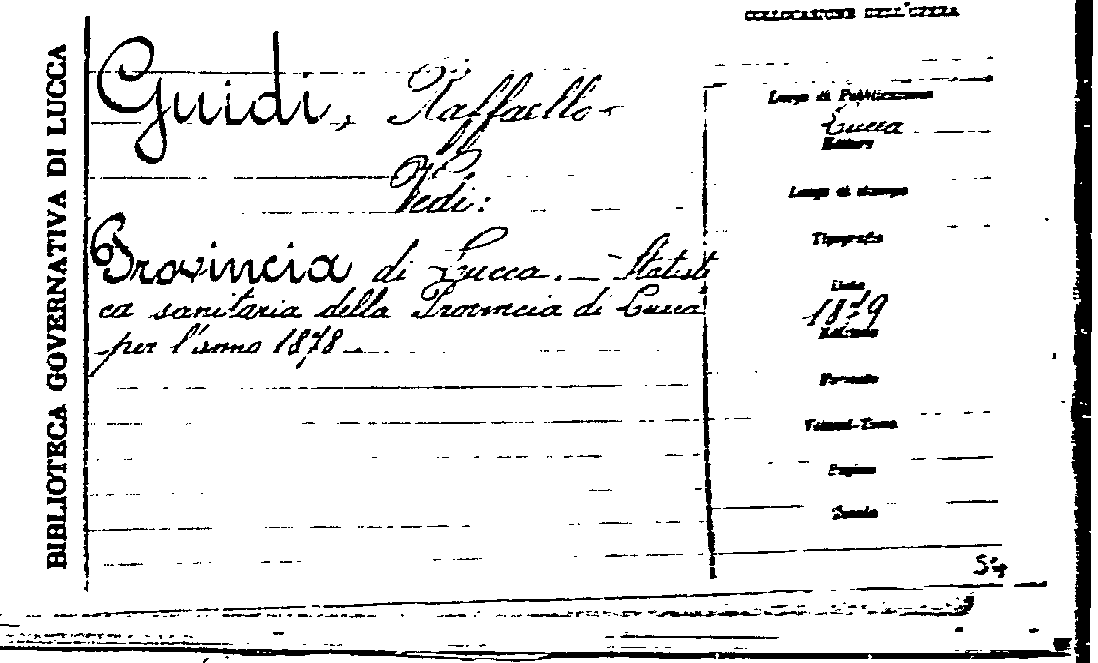 COLLOCAZIONE DELL'OPERA
BIBLIOTECA GOVERNATIVA DI LUCCA
Guidi, Raffaello-
Vedi:
Provincia di Lucca. — Statisti
ca sanitaria della Provincia di Lucca
per l'anno 1878 —
Luogo di Pubblicazione
Lucca
Editore
Luogo di stampa
Tipografia
Data
1879
Edizione
Formato
Volumi-Tomo
Pagine